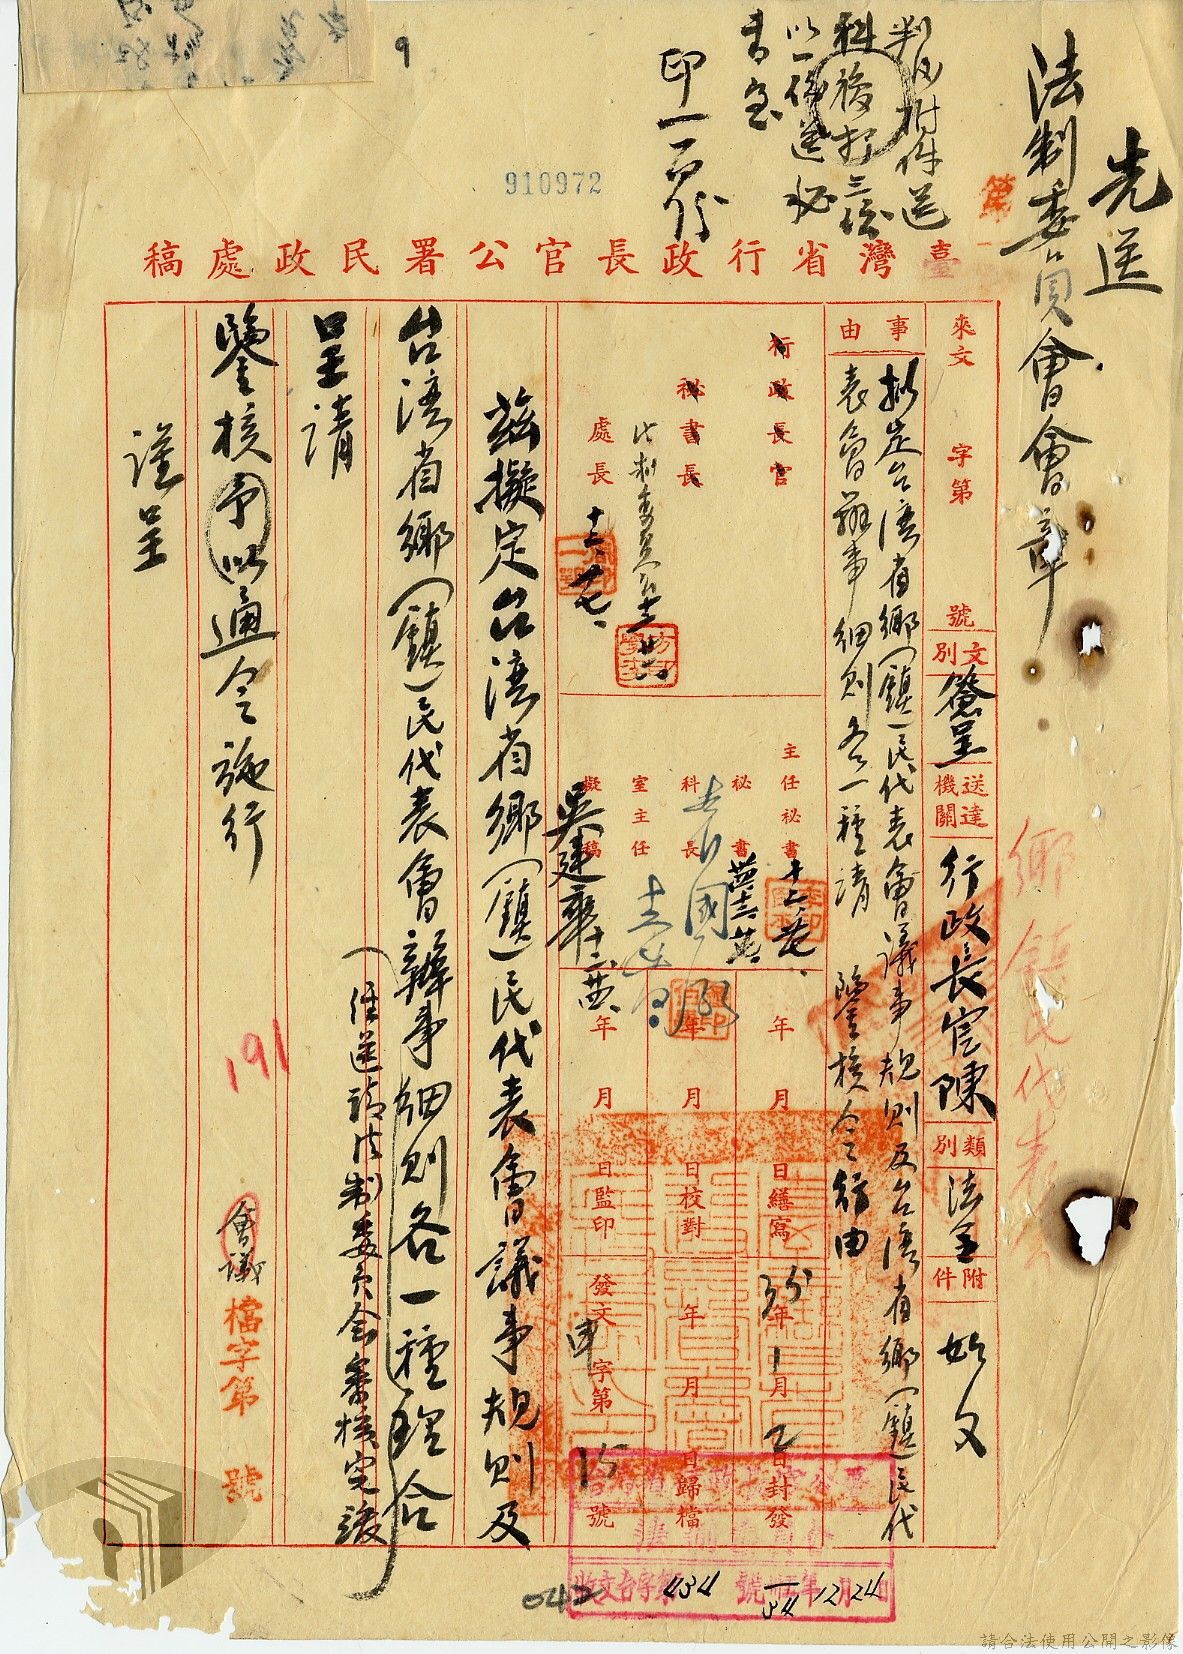 先送
法制委員會會章
判後附件送
科後打三份
以一份送秘
書室
印一百份
910972
臺灣省行政長官公署民政處稿
來文 字第 號
文別 簽呈
送達機關 行政長官陳
類別 法令
附件 如文
事由
擬定台灣省鄉(鎮)民代表會議事規則及台灣省鄉(鎮)民代
表會辦事細則各一種請 鑒核令行由
行政長官
秘書長
處長
主任秘書
秘書
科長
室主任
擬稿
吳建華
年 月 日繕寫
年 月 日校對
年 月 日監印
35年1月2日封發
年 月 日歸檔
發文 字第 15 號
茲擬定台灣省鄉(鎮)民代表會議事規則及
台灣省鄉(鎮)民代表會辦事細則各一種理合
(經送請法制委員會審核完竣
呈請
鑒核予以通令施行
謹呈
會議
檔字第 號
鄉鎮民代表會
191
042
434
12 24
請合法使用公開之影像